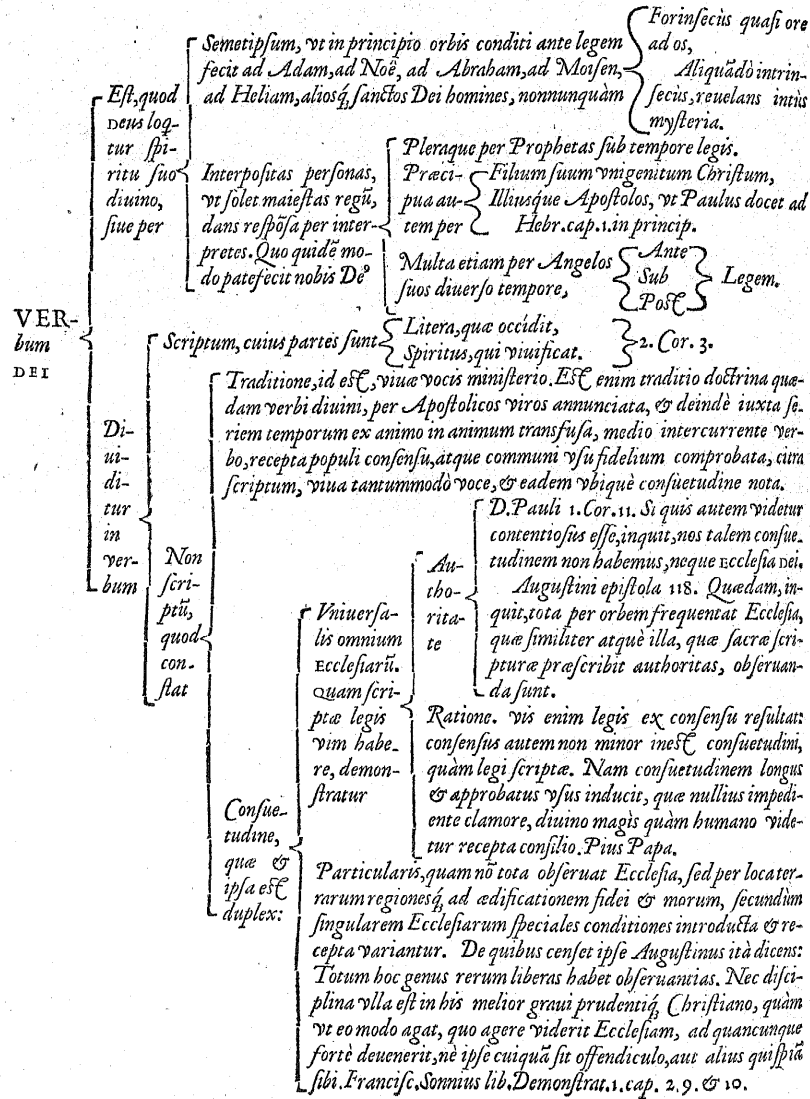 VER-
bum
DEI
Est, quod
DEUS loq̃-
tur spi-
ritu suo
diuino,
siue per
Semetipsum, vt in principio orbis conditi ante legem
fecit ad Adam, ad Noë, ad Abraham, ad Moisen,
ad Heliam, aliosq́; sanctos Dei homines, nonnunquàm
Forinsecùs quasi ore
ad os,
Aliquãdò intrin-
secùs, reuelans intùs
mysteria.
Interpositas personas,
vt solet maiestas regũ,
dans respõsa per inter-
pretes. Quo quidẽ mo-
do patefecit nobis Deꝰ
Pleraque per Prophetas sub tempore legis.
Præci-
pua au-
tem per
Filium suum vnigenitum Christum,
Illiusque Apostolos, vt Paulus docet ad
Hebr. cap. 1. in princip.
Multa etiam per Angelos
suos diuerso tempore,
Ante
Sub
Post
Legem.
Di-
ui-
di-
tur
in
ver-
bum
Scriptum, cuius partes sunt
Litera, quæ occídit,
Spiritus, qui viuificat.
2. Cor. 3.
Non
scri-
ptũ,
quod
con-
stat
Traditione, id est, viuæ vocis ministerio. Est enim traditio doctrina quæ-
dam verbi diuini, per Apostolicos viros annunciata, & deindè iuxta se-
riem temporum ex animo in animum transfusa, medio intercurrente ver-
bo, recepta populi consensu, atque communi vsu fidelium comprobata, citra
scriptum, viua tantummodò voce, & eadem vbiquè consuetudine nota.
Consue-
tudine,
quæ &
ipsa est
duplex:
Vniuersa-
lis omnium
Ecclesiarũ.
Quam scri-
ptæ legis
vim habe-
re, demon-
stratur
Au-
tho-
rita-
te
D. Pauli 1. Cor. 11. Si quis autem videtur
contentiosus esse, inquit, nos talem consue-
tudinem non habemus, neque Ecclesia DEI.
Augustini epistola 118. Quædam, in-
quit, tota per orbem frequentat Ecclesia,
quæ similiter atquè illa, quæ sacræ scri-
pturæ præscribit authoritas, obseruan-
da sunt.
Ratione. vis enim legis ex consensu resultat:
consensus autem non minor inest consuetudini,
quàm legi scriptæ. Nam consuetudinem longus
& approbatus vsus inducit, quæ nullius impedi-
ente clamore, diuino magis quàm humano vide-
tur recepta consilio. Pius Papa.
Particularis, quam nõ tota obseruat Ecclesia, sed per loca ter-
rarum regionesq́; ad ædificationem fidei & morum, secundùm
singularem Ecclesiarum speciales conditiones introducta & re-
cepta variantur. De quibus censet ipse Augustinus ità dicens:
Totum hoc genus rerum liberas habet obseruantias. Nec disci-
plina vlla est in his melior graui prudentiq́; Christiano, quàm
vt eo modo agat, quo agere viderit Ecclesiam, ad quancunque
fortè deuenerit, nè ipse cuiquã sit offendiculo, aut alius quispiã
sibi. Francisc. Sonnius lib. Demonstrat. 1. cap. 2. 9. & 10.